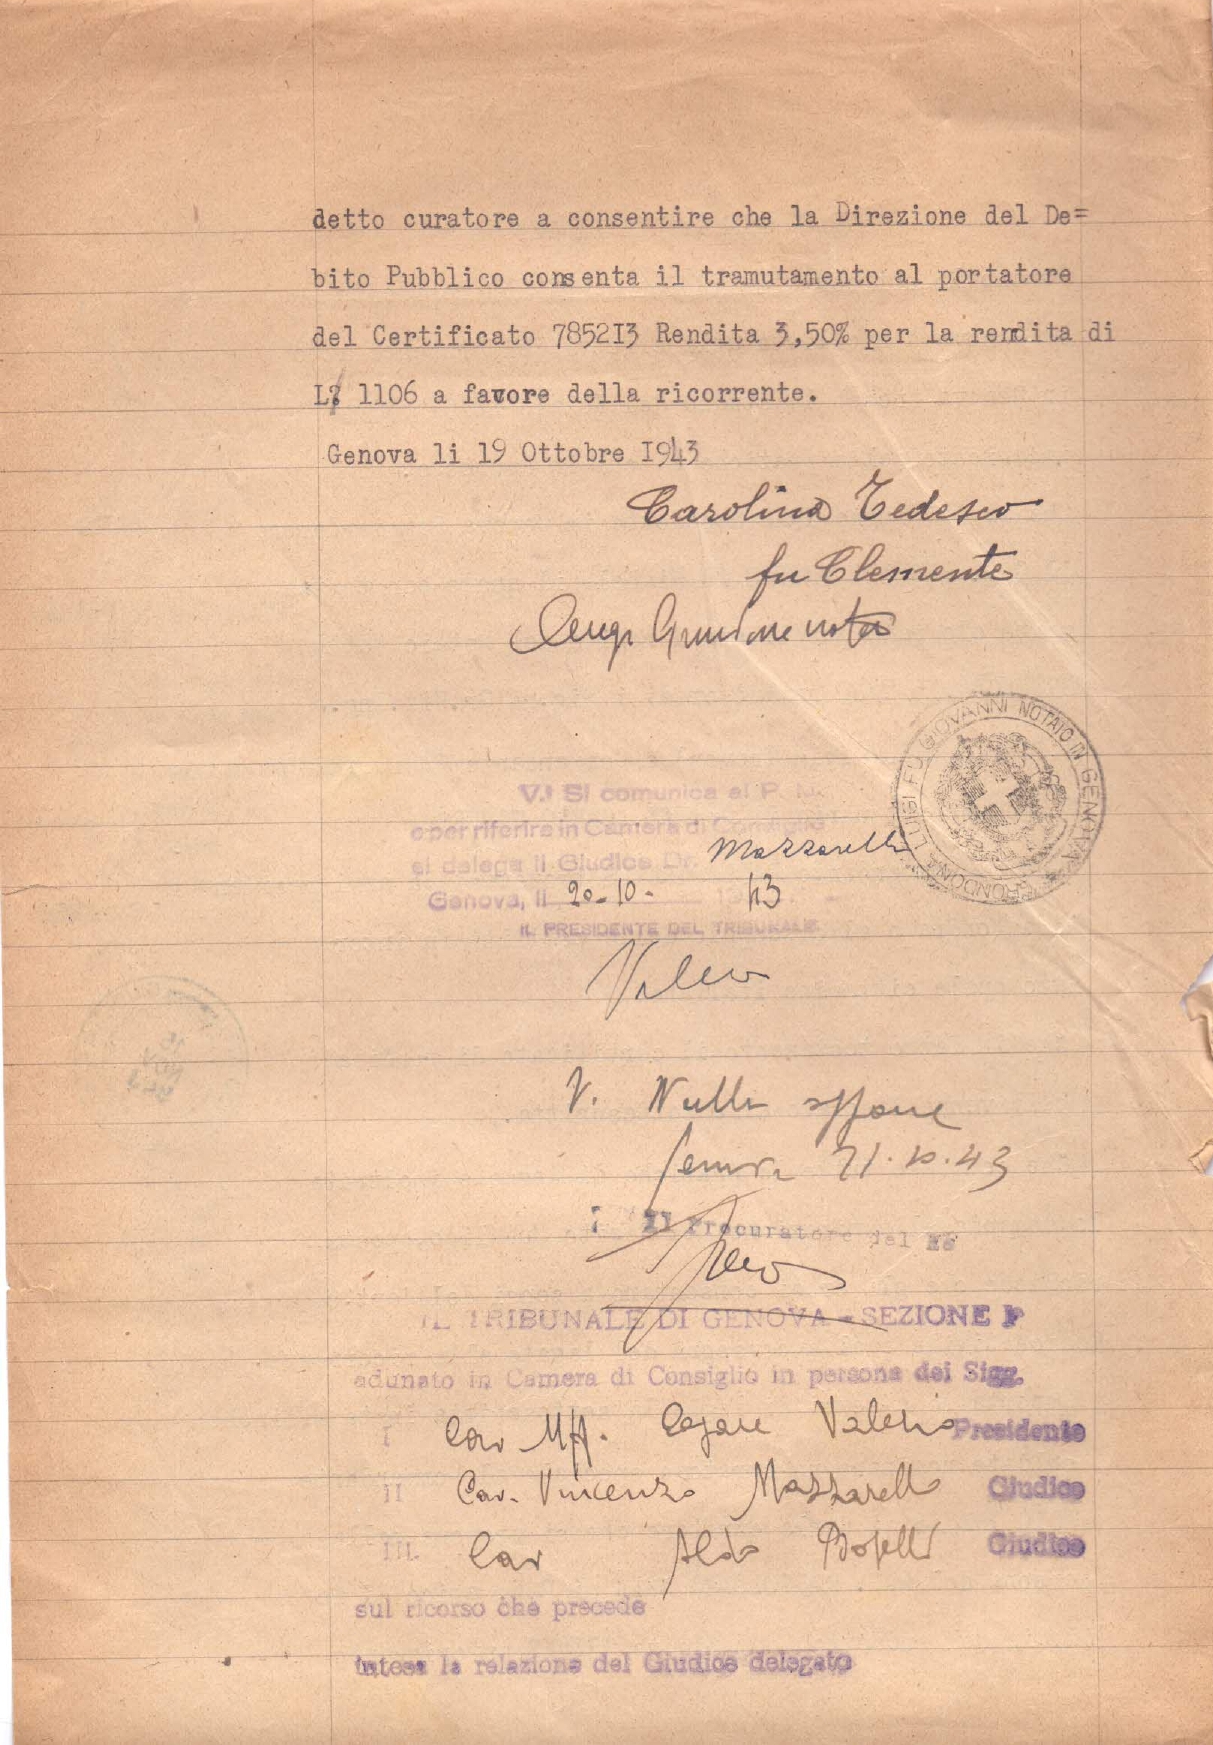 detto curatore a consentire che la Direzione del De=
bito Pubblico consenta il tramutamento al portatore
del Certificato 785213 Rendita 3,50% per la rendita di
L. 1106 a favore della ricorrente.
Genova li 19 Ottobre 1943
Carolina Tedesco
fu Clemente
Luigi Grondona notaio
LUIGI FU GIOVANNI NOTAIO IN GENOVA * GRONDONA
V.I Si comunica al P. M.
e per riferire in Camera di Consiglio
si delega il Giudice Dr. Mazzarello
Genova, li 20-10- 43
IL PRESIDENTE DEL TRIBUNALE
Valerio
V. Nulla oppone
Genova 21.10.43
Il Procuratore del Re
IL TRIBUNALE DI GENOVA - SEZIONE I
adunato in Camera di Consiglio in persona dei Sigg.
I Cav. Uff. Cesare Valerio Presidente
II Cav. Vincenzo Mazzarello Giudice
III. Cav Aldo Boselli Giudice
sul ricorso che precede
intesa la relazione del Giudice delegato